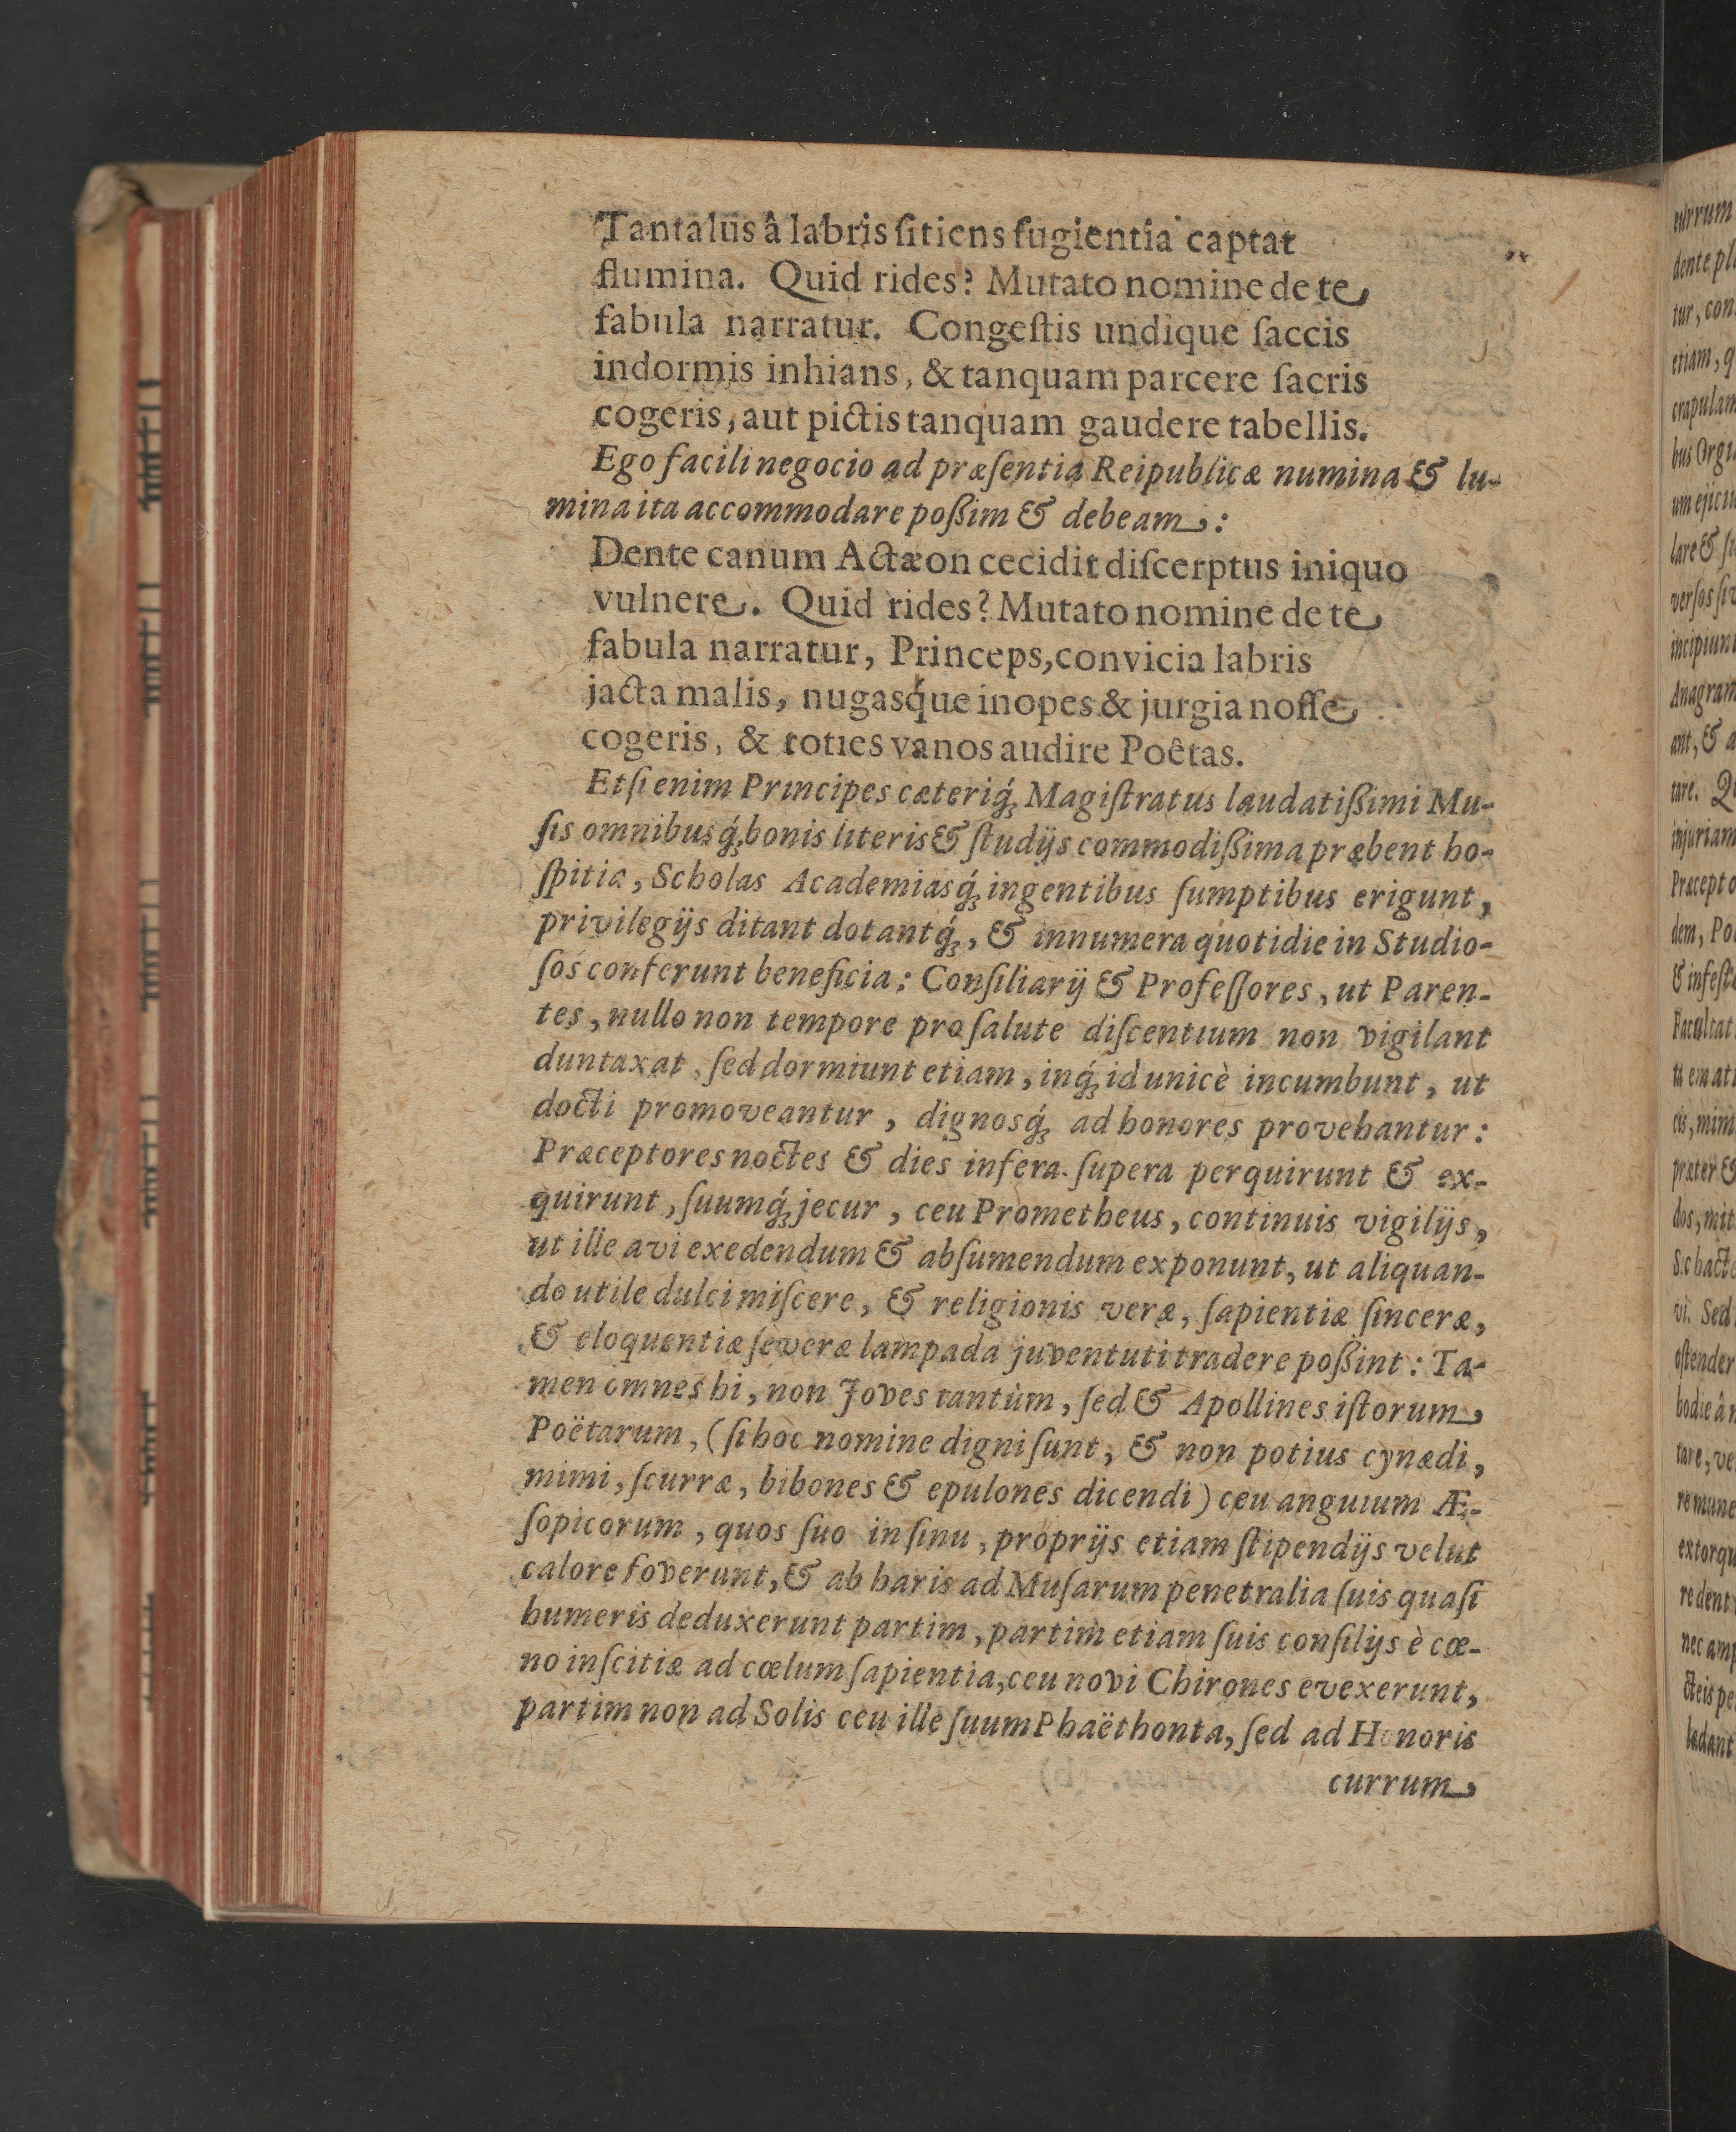 Tantalus â labris ſitiens fugientia captat
flumina. Quid rides? Mutato nomine de te
fabula narratur. Congeſtis undique ſaccis
indormis inhians, & tanquam parcere ſacris
cogeris, aut pictis tanquam gaudere tabellis.
Ego facili negocio ad præſentia Reipublicæ numina & lu-
mina ita accommodare poßim & debeam:
Dente canum Actæon cecidit diſcerptus iniquo
vulnere. Quid rides? Mutato nomine de te
fabula narratur, Princeps, convicia labris
jacta malis, nugasq́ue inopes & jurgia noſſe
cogeris, & toties vanos audire Poêtas.
Etſi enim Principes cæteriq́ꝫ Magiſtratus laudatißimi Mu-
ſis omnibusq́ꝫ bonis literis & ſtudijs commodißima præbent ho-
ſpitia, Scholas Academiasq́ꝫ ingentibus ſumptibus erigunt,
privilegijs ditant dotantq́ꝫ, & innumera quotidie in Studio-
ſos conferunt beneficia: Conſiliarij & Profeſſores, ut Paren-
tes, nullo non tempore pro ſalute diſcentium non vigilant
duntaxat, ſed dormiunt etiam, inq́ꝫ id unicè incumbunt, ut
docti promoveantur, dignosq́ꝫ ad honores provehantur:
Præceptores noctes & dies infera. ſupera perquirunt & ex-
quirunt, ſuumq́ꝫ jecur, ceu Prometheus, continuis vigilijs,
ut ille avi exedendum & abſumendum exponunt, ut aliquan-
do utile dulci miſcere, & religionis veræ, ſapientiæ ſinceræ,
& eloquentiæ ſeveræ lampada juventuti tradere poßint: Ta-
men omnes hi, non Joves tantùm, ſed & Apollines iſtorum
Poëtarum, (ſi hoc nomine digni ſunt, & non potius cynædi,
mimi, ſcurræ, bibones & epulones dicendi) ceu anguium Æ-
ſopicorum, quos ſuo in ſinu, proprijs etiam ſtipendijs velut
calore foverunt, & ab haris ad Muſarum penetralia ſuis quaſi
humeris deduxerunt partim, partim etiam ſuis conſilijs è cœ-
no inſcitiæ ad cœlum ſapientia, ceu novi Chirones evexerunt,
partim non ad Solis ceu ille ſuum Phaëthonta, ſed ad Honoris
currum